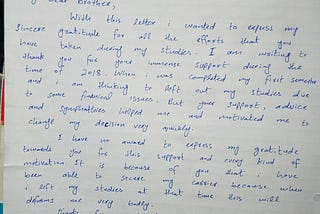 dear Brother,
With this letter i wanted to express my
Sincere gratitude for all the efforts that you
have taken during my studies. I am writing to
thank you for your immense support during the
time of 2018. When i was completed my first semester
and i am thinking to left out my studies due
to some financial issues. But your support, advice
and sympathies helped me and motivated me to
change my decision very quickly.
I have no award to express my gratitude
towards you for this support and every kind of
motivation. It is because of you that i have
been able to secure my carrier because when
i left my studies at that time this will
me very badly.